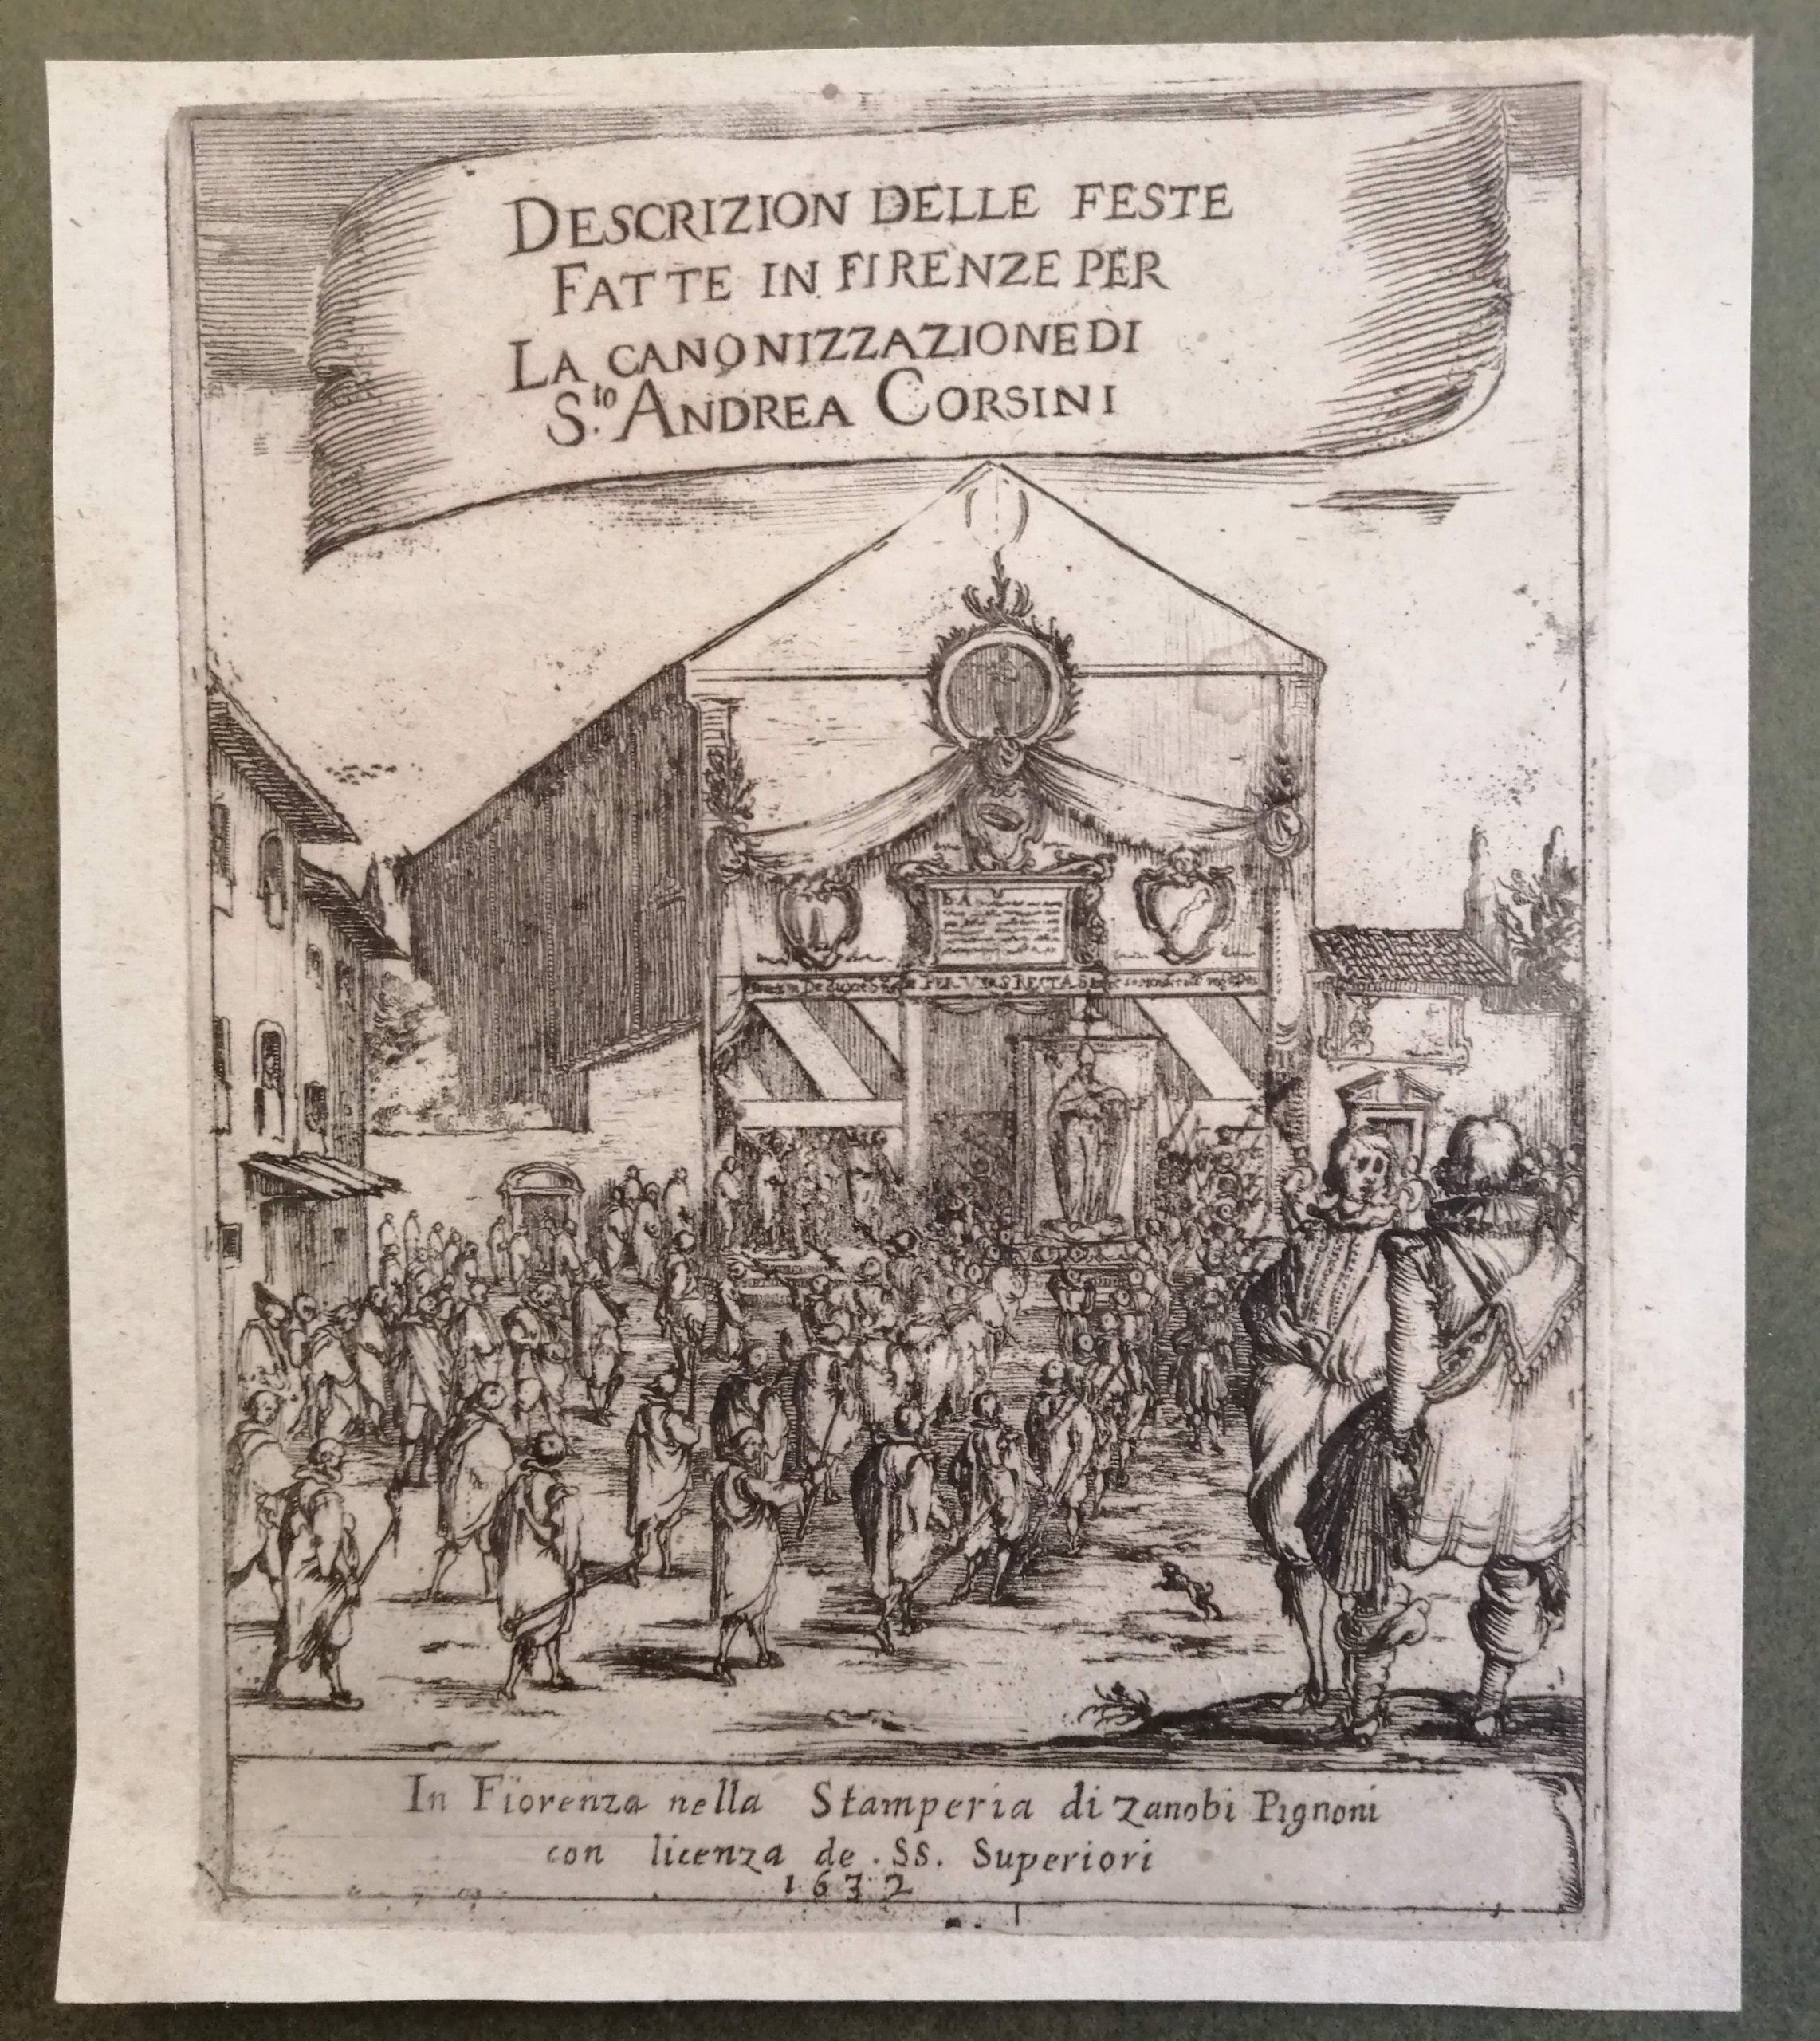 DESCRIZION DELLE FESTE
FATTE IN FIRENZE PER
LA CANONIZZAZIONE DI
S.to ANDREA CORSINI
PER VIAS RECTAS
In Fiorenza nella Stamperia di Zanobi Pignoni
con licenza de . SS. Superiori
1632